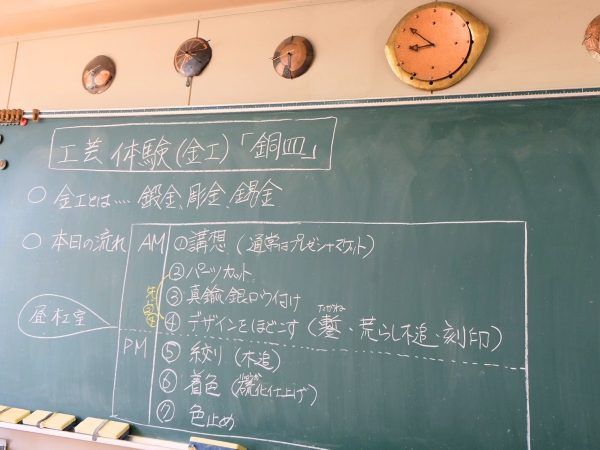 工芸体験(金工)「銅皿」
○ 金工とは… 鍛金、彫金、鋳金
○ 本日の流れ
AM
①講想 (通常はプレゼン+マケット)
②パーツカット
③真鍮、銀ロウ付け
たがね
④デザインをほどこす (鏨・荒らし木追・刻印)
昼 木工室
PM
⑤絞り (木追)
⑥着色 (硫化仕上げ)
⑦色止め